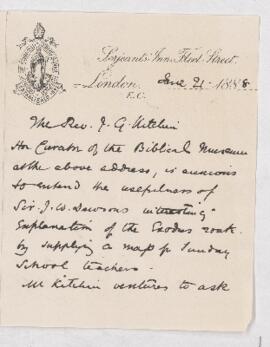 Serjeants' Inn, Fleet Street,
London, June 21 1888
E.C.
The Rev. J. G. Kitchin
Hon Curator of the Biblical Museum
at the above address, is anxious
to extend the usefulness of
Sir. J. W. Dawsons interesting
Explanation of the Exodus route
by supplying a map for Sunday
School teachers.
Mr Kitchin ventures to ask